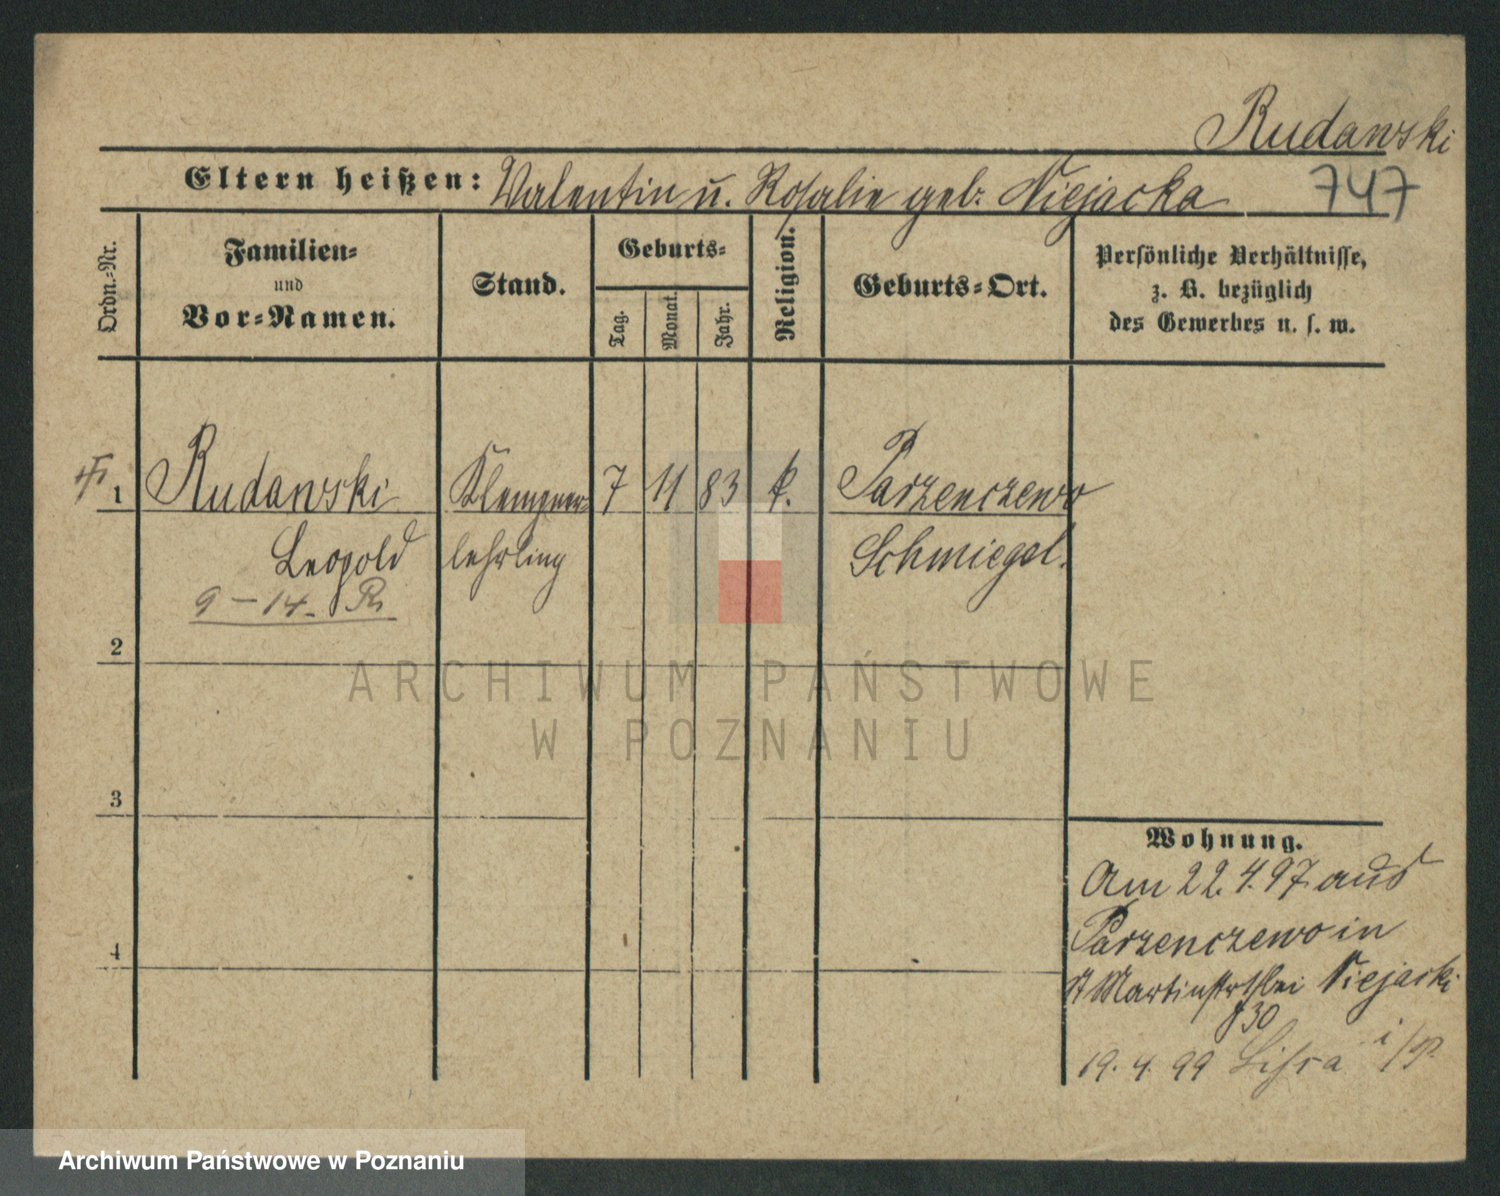 Rudawski
Eltern heißen: Valentin u. Rosalie geb. Niejacka
747
Ordn.=Nr.
Familien=
und
Vor=Namen.
Stand.
Geburts=
Tag.
Monat.
Jahr.
Religion.
Geburts=Ort.
Persönliche Verhältnisse,
z. B. bezüglich
des Gewerbes u. s. w.
1 Rudawski Klempner= 7 11 83 k. Parzenczewo
Leopold lehrling Schmiegel.
9 – 14.
2
3
4
Wohnung.
Am 22.4.97 aus
Parzenczewo in
St Martinstr bei Niejacki
30
19. 4. 99 Lissa i/P
ARCHIWUM PAŃSTWOWE
W POZNANIU
Archiwum Państwowe w Poznaniu